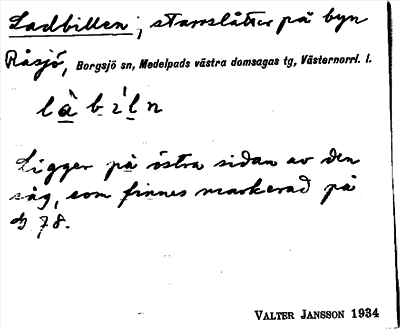 Ladbillen; starrslåtter på byn
Råsjö, Borgsjö sn, Medelpads västra domsagas tg, Västernorrl. l.
Ligger på östra sidan av den
väg, som finnes markerad på
78.
VALTER JANSSON 1934